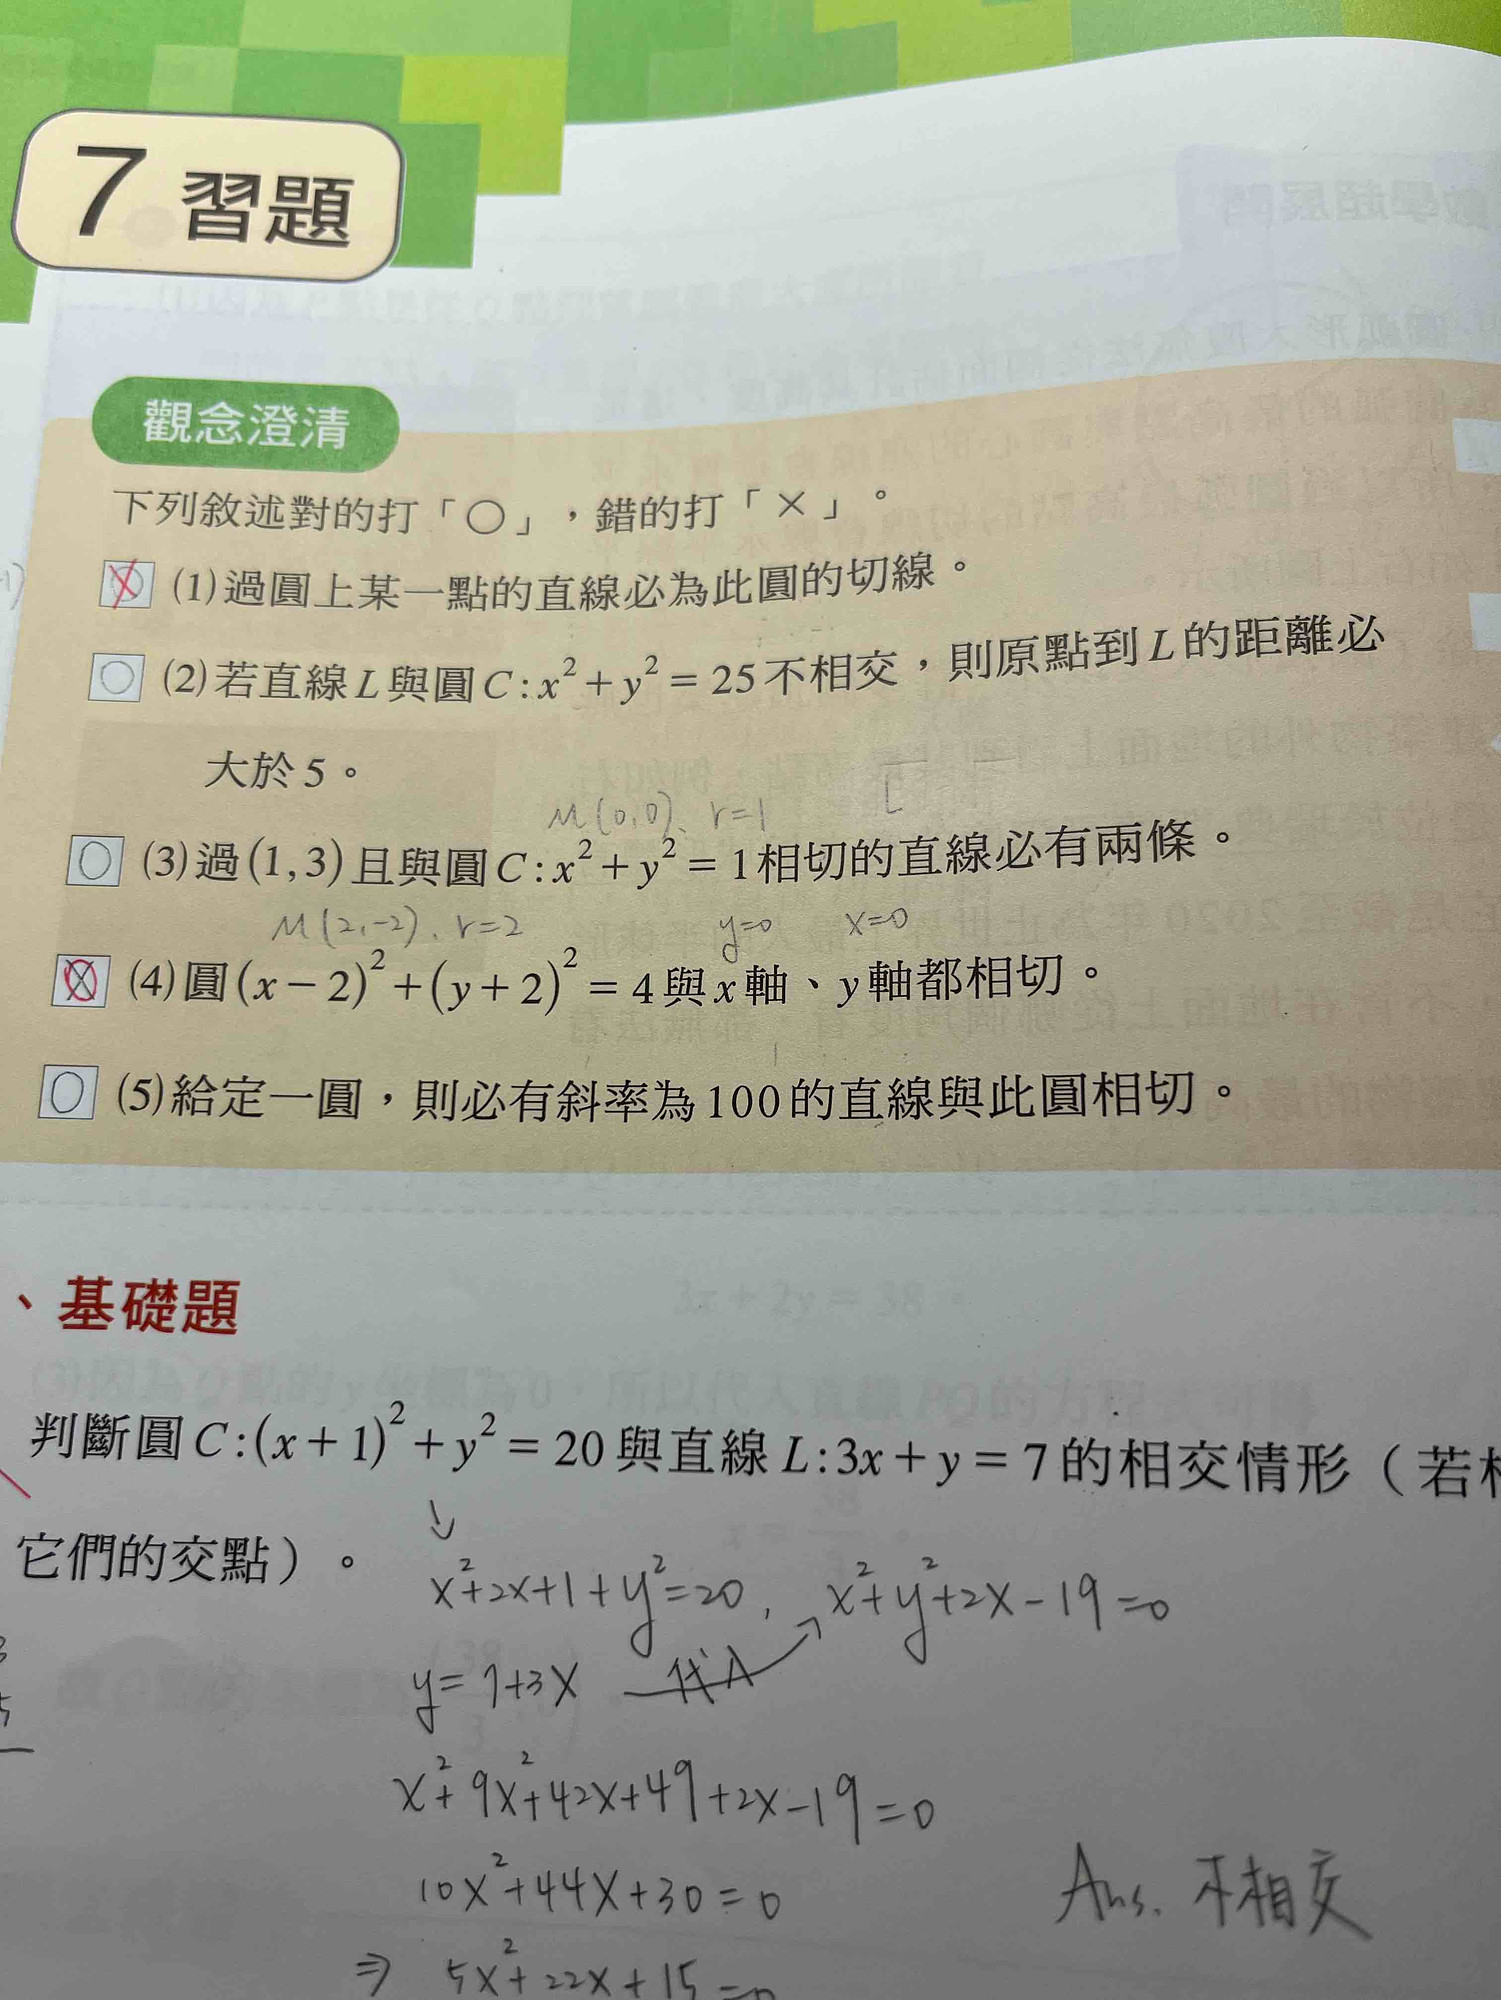 7 習題
觀念澄清
下列敘述對的打「○」,錯的打「×」。
(1)過圓上某一點的直線必為此圓的切線。
○ (2)若直線L與圓C:x²+y²=25不相交,則原點到L的距離必
大於5。
M(0,0)、r=1
○ (3)過(1,3)且與圓C:x²+y²=1相切的直線必有兩條。
M(2,-2)、r=2 y=0 x=0
(4)圓(x-2)²+(y+2)²=4與x軸、y軸都相切。
○ (5)給定一圓,則必有斜率為100的直線與此圓相切。
、基礎題
判斷圓C:(x+1)²+y²=20與直線L:3x+y=7的相交情形(若
它們的交點)。
↓
x²+2x+1+y²=20, x²+y²+2x-19=0
y=7+3x 代入
x²+9x²+42x+49+2x-19=0
10x²+44x+30=0
Ans. 不相交
⇒ 5x²+22x+15=0